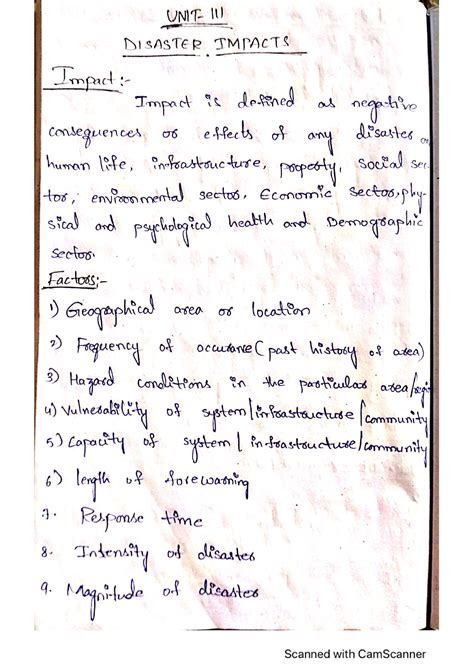 UNIT- III
DISASTER IMPACTS
Impact :-
Impact is defined as negative
consequences or effects of any disaster on
human life, infrastructure, property, social sec-
tor, environmental sector, Economic sector, phy-
sical and psychological health and Demographic
sector.
Factors:-
1) Geographical area or location
2) Frequency of occurance (past history of area)
3) Hazard conditions in the particular area/
4) Vulnerability of system/infrastructure/community
5) Capacity of system / infrastructure/community
6) length of forewarning
7. Response time
8. Intensity of disaster
9. Magnitude of disaster
Scanned with CamScanner